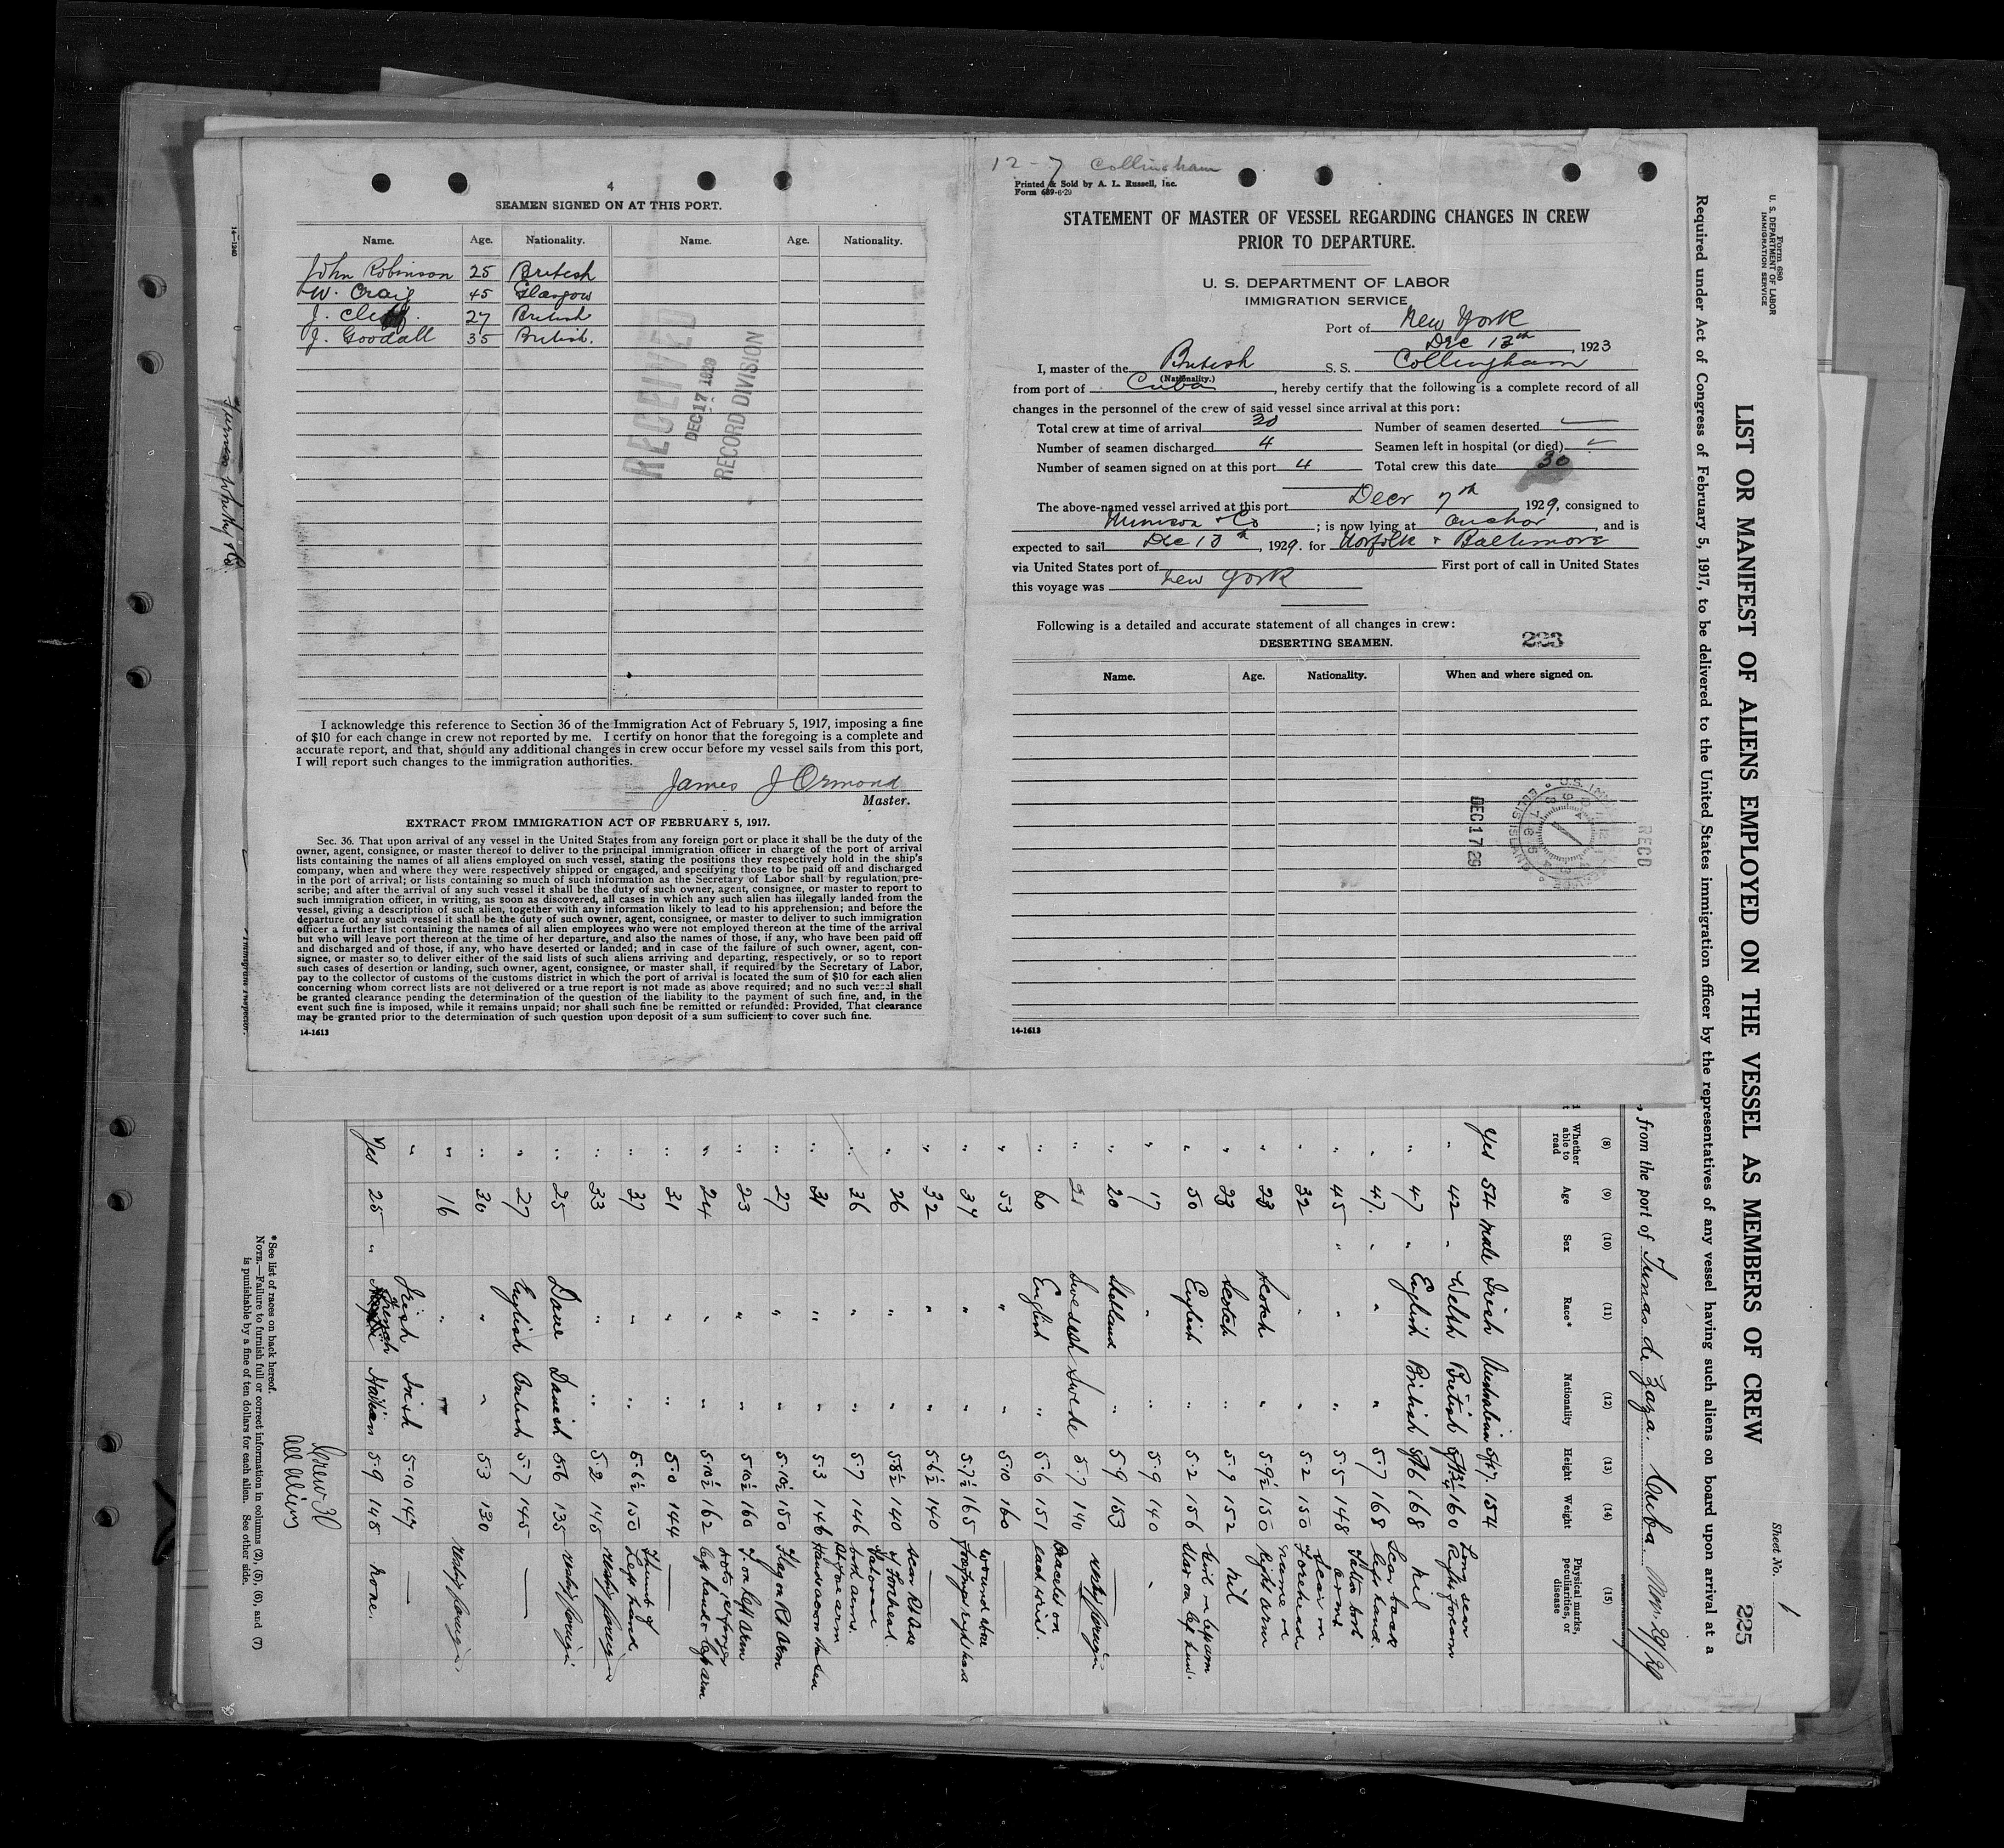 4
SEAMEN SIGNED ON AT THIS PORT.
Name. Age. Nationality. Name. Age. Nationality.
John Robinson 25 British
W. Craig 45 Glasgow
J. 27 British
J. Goodall 35 British.
RECEIVED
DEC 17 1929
RECORD DIVISION
I acknowledge this reference to Section 36 of the Immigration Act of February 5, 1917, imposing a fine
of $10 for each change in crew not reported by me. I certify on honor that the foregoing is a complete and
accurate report, and that, should any additional changes in crew occur before my vessel sails from this port,
I will report such changes to the immigration authorities.
James J Ormond
Master.
EXTRACT FROM IMMIGRATION ACT OF FEBRUARY 5, 1917.
Sec. 36. That upon arrival of any vessel in the United States from any foreign port or place it shall be the duty of the
owner, agent, consignee, or master thereof to deliver to the principal immigration officer in charge of the port of arrival
lists containing the names of all aliens employed on such vessel, stating the positions they respectively hold in the ship's
company, when and where they were respectively shipped or engaged, and specifying those to be paid off and discharged
in the port of arrival; or lists containing so much of such information as the Secretary of Labor shall by regulation pre-
scribe; and after the arrival of any such vessel it shall be the duty of such owner, agent, consignee, or master to report to
such immigration officer, in writing, as soon as discovered, all cases in which any such alien has illegally landed from the
vessel, giving a description of such alien, together with any information likely to lead to his apprehension; and before the
departure of any such vessel it shall be the duty of such owner, agent, consignee, or master to deliver to such immigration
officer a further list containing the names of all alien employees who were not employed thereon at the time of the arrival
but who will leave port thereon at the time of her departure, and also the names of those, if any, who have been paid off
and discharged and of those, if any, who have deserted or landed; and in case of the failure of such owner, agent, con-
signee, or master so to deliver either of the said lists of such aliens arriving and departing, respectively, or so to report
such cases of desertion or landing, such owner, agent, consignee, or master shall, if required by the Secretary of Labor,
pay to the collector of customs of the customs district in which the port of arrival is located the sum of $10 for each alien
concerning whom correct lists are not delivered or a true report is not made as above required; and no such vessel shall
be granted clearance pending the determination of the question of the liability to the payment of such fine, and, in the
event such fine is imposed, while it remains unpaid; nor shall such fine be remitted or refunded: Provided, That clearance
may be granted prior to the determination of such question upon deposit of a sum sufficient to cover such fine.
14-1613
12-7 Collingham
Printed & Sold by A. L. Russell, Inc.
Form 689-6-29
STATEMENT OF MASTER OF VESSEL REGARDING CHANGES IN CREW
PRIOR TO DEPARTURE.
U. S. DEPARTMENT OF LABOR
IMMIGRATION SERVICE
Port of New York
Dec 13th, 1923
I, master of the British S. S. Collingham
(Nationality.)
from port of Cuba, hereby certify that the following is a complete record of all
changes in the personnel of the crew of said vessel since arrival at this port:
Total crew at time of arrival 30 Number of seamen deserted
Number of seamen discharged 4 Seamen left in hospital (or died)
Number of seamen signed on at this port 4 Total crew this date 30
The above-named vessel arrived at this port Decr 7th 1929, consigned to
Munson & Co ; is now lying at anchor, and is
expected to sail Dec 13th, 1929. for Norfolk & Baltimore
via United States port of First port of call in United States
this voyage was New York
Following is a detailed and accurate statement of all changes in crew:
DESERTING SEAMEN. 223
Name. Age. Nationality. When and where signed on.
DEC 17 29
RECD
14-1613
Form 680
U. S. DEPARTMENT OF LABOR
IMMIGRATION SERVICE
Sheet No. 1
225
LIST OR MANIFEST OF ALIENS EMPLOYED ON THE VESSEL AS MEMBERS OF CREW
Required under Act of Congress of February 5, 1917, to be delivered to the United States immigration officer by the representatives of any vessel having such aliens on board upon arrival at a
from the port of Tunas de Zaza. Cuba Nov. 29/29
(8) (9) (10) (11) (12) (13) (14) (15)
Whether able to read Age Sex Race* Nationality Height Weight Physical marks, peculiarities, or disease
Yes 54 male Irish Australian 5-7 154
" 42 " Welsh British 160 Long scar Right Forearm
" 47 " English British 168 nil
" 47. " " " 5.7 168 Scar back left hand.
" 45 " " " 5.5 148 Tattoo both arms
" 32 " " 5.2 150 Scar on Forehead
" 23 Scotch " 5.9½ 150 name on right arm
" 23 Scotch " 5.9 152 nil
" 50 English " 5.2 156
" 17 " " 5.9 140 "
" 20 Shetland " 5.9 153
" 21 Swedish Swede 5.7 140
" 60 English " 5.6 151 Bracelet on each wrist.
" 53 " " 5.10 160
" 37 " " 5.7½ 165
" 32 " " 5.6½ 140
" 26 " " 5.8½ 140 scar Rt side of Forehead.
" 36 " " 5.7 146 Tattooed both arms.
" 31 " " 5.3 146
" 27 " " 5.10½ 150 Flag on Rt Arm
" 23 " " 5.10½ 160 T. on left Arm
" 24 " " 5.10½ 162
" 31 " " 5.0 144
" 37 " " 5.6½ 150 Thumb of Left hand.
" 33 " " 5.2 146
" 25 Dane Danish 5.6 135
" 27 English British 5.7 145
" 30 " " 5.3 130
" 16 "
" Irish Irish 5.10 147
Yes 25 " French Haitian 5.9 148 none.
Crew 30
all aliens
*See list of races on back hereof.
NOTE.—Failure to furnish full or correct information in columns (2), (5), (6), and (7)
is punishable by a fine of ten dollars for each alien. See other side.
14-1240
Furness Withy & Co.
Immigrant Inspector.